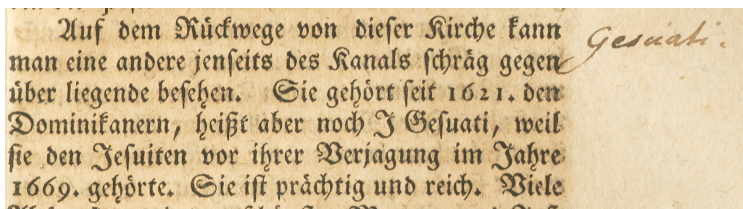 Auf dem Rückwege von dieser Kirche kann
man eine andere jenseits des Kanals schräg gegen
über liegende besehen. Sie gehört seit 1621. den
Dominikanern, heißt aber noch J Gesuati, weil
sie den Jesuiten vor ihrer Verjagung im Jahre
1669. gehörte. Sie ist prächtig und reich. Viele
Gesuati.